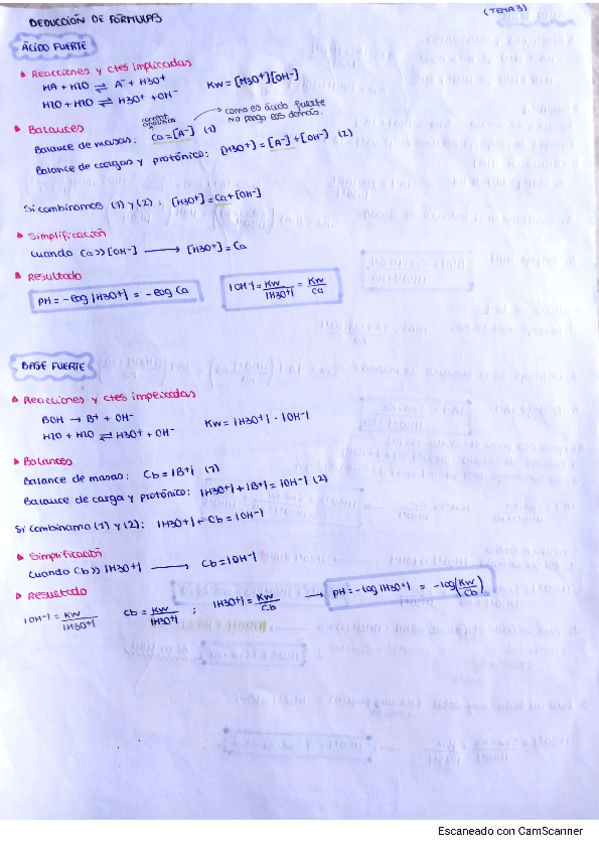 DEDUCCIÓN DE FÓRMULAS
(TEMA 3)
ÁCIDO FUERTE
Reacciones y ctes implicadas
HA + H2O ⇌ A⁻ + H3O⁺
Kw = [H3O⁺][OH⁻]
H2O + H2O ⇌ H3O⁺ + OH⁻
Balances
como es ácido fuerte
No pongo eos demás.
Balance de masas: Ca = [A⁻] (1)
Balance de cargas y protónico: [H3O⁺] = [A⁻] + [OH⁻] (2)
Si combinamos (1) y (2): [H3O⁺] = Ca + [OH⁻]
Simplificación
cuando Ca >> [OH⁻] → [H3O⁺] = Ca
Resultado
pH = -log |H3O⁺| = -log Ca
|OH⁻| = Kw/|H3O⁺| = Kw/Ca
BASE FUERTE
Reacciones y ctes implicadas
BOH → B⁺ + OH⁻
Kw = |H3O⁺| · |OH⁻|
H2O + H2O ⇌ H3O⁺ + OH⁻
Balances
Balance de masas: Cb = |B⁺| (1)
Balance de carga y protónico: |H3O⁺| + |B⁺| = |OH⁻| (2)
Si combinamo (1) y (2): |H3O⁺| + Cb = |OH⁻|
Simplificación
cuando Cb >> |H3O⁺| → Cb = |OH⁻|
Resultado
|OH⁻| = Kw/|H3O⁺| Cb = Kw/|H3O⁺| ; |H3O⁺| = Kw/Cb → pH = -log |H3O⁺| = -log(Kw/Cb)
Escaneado con CamScanner